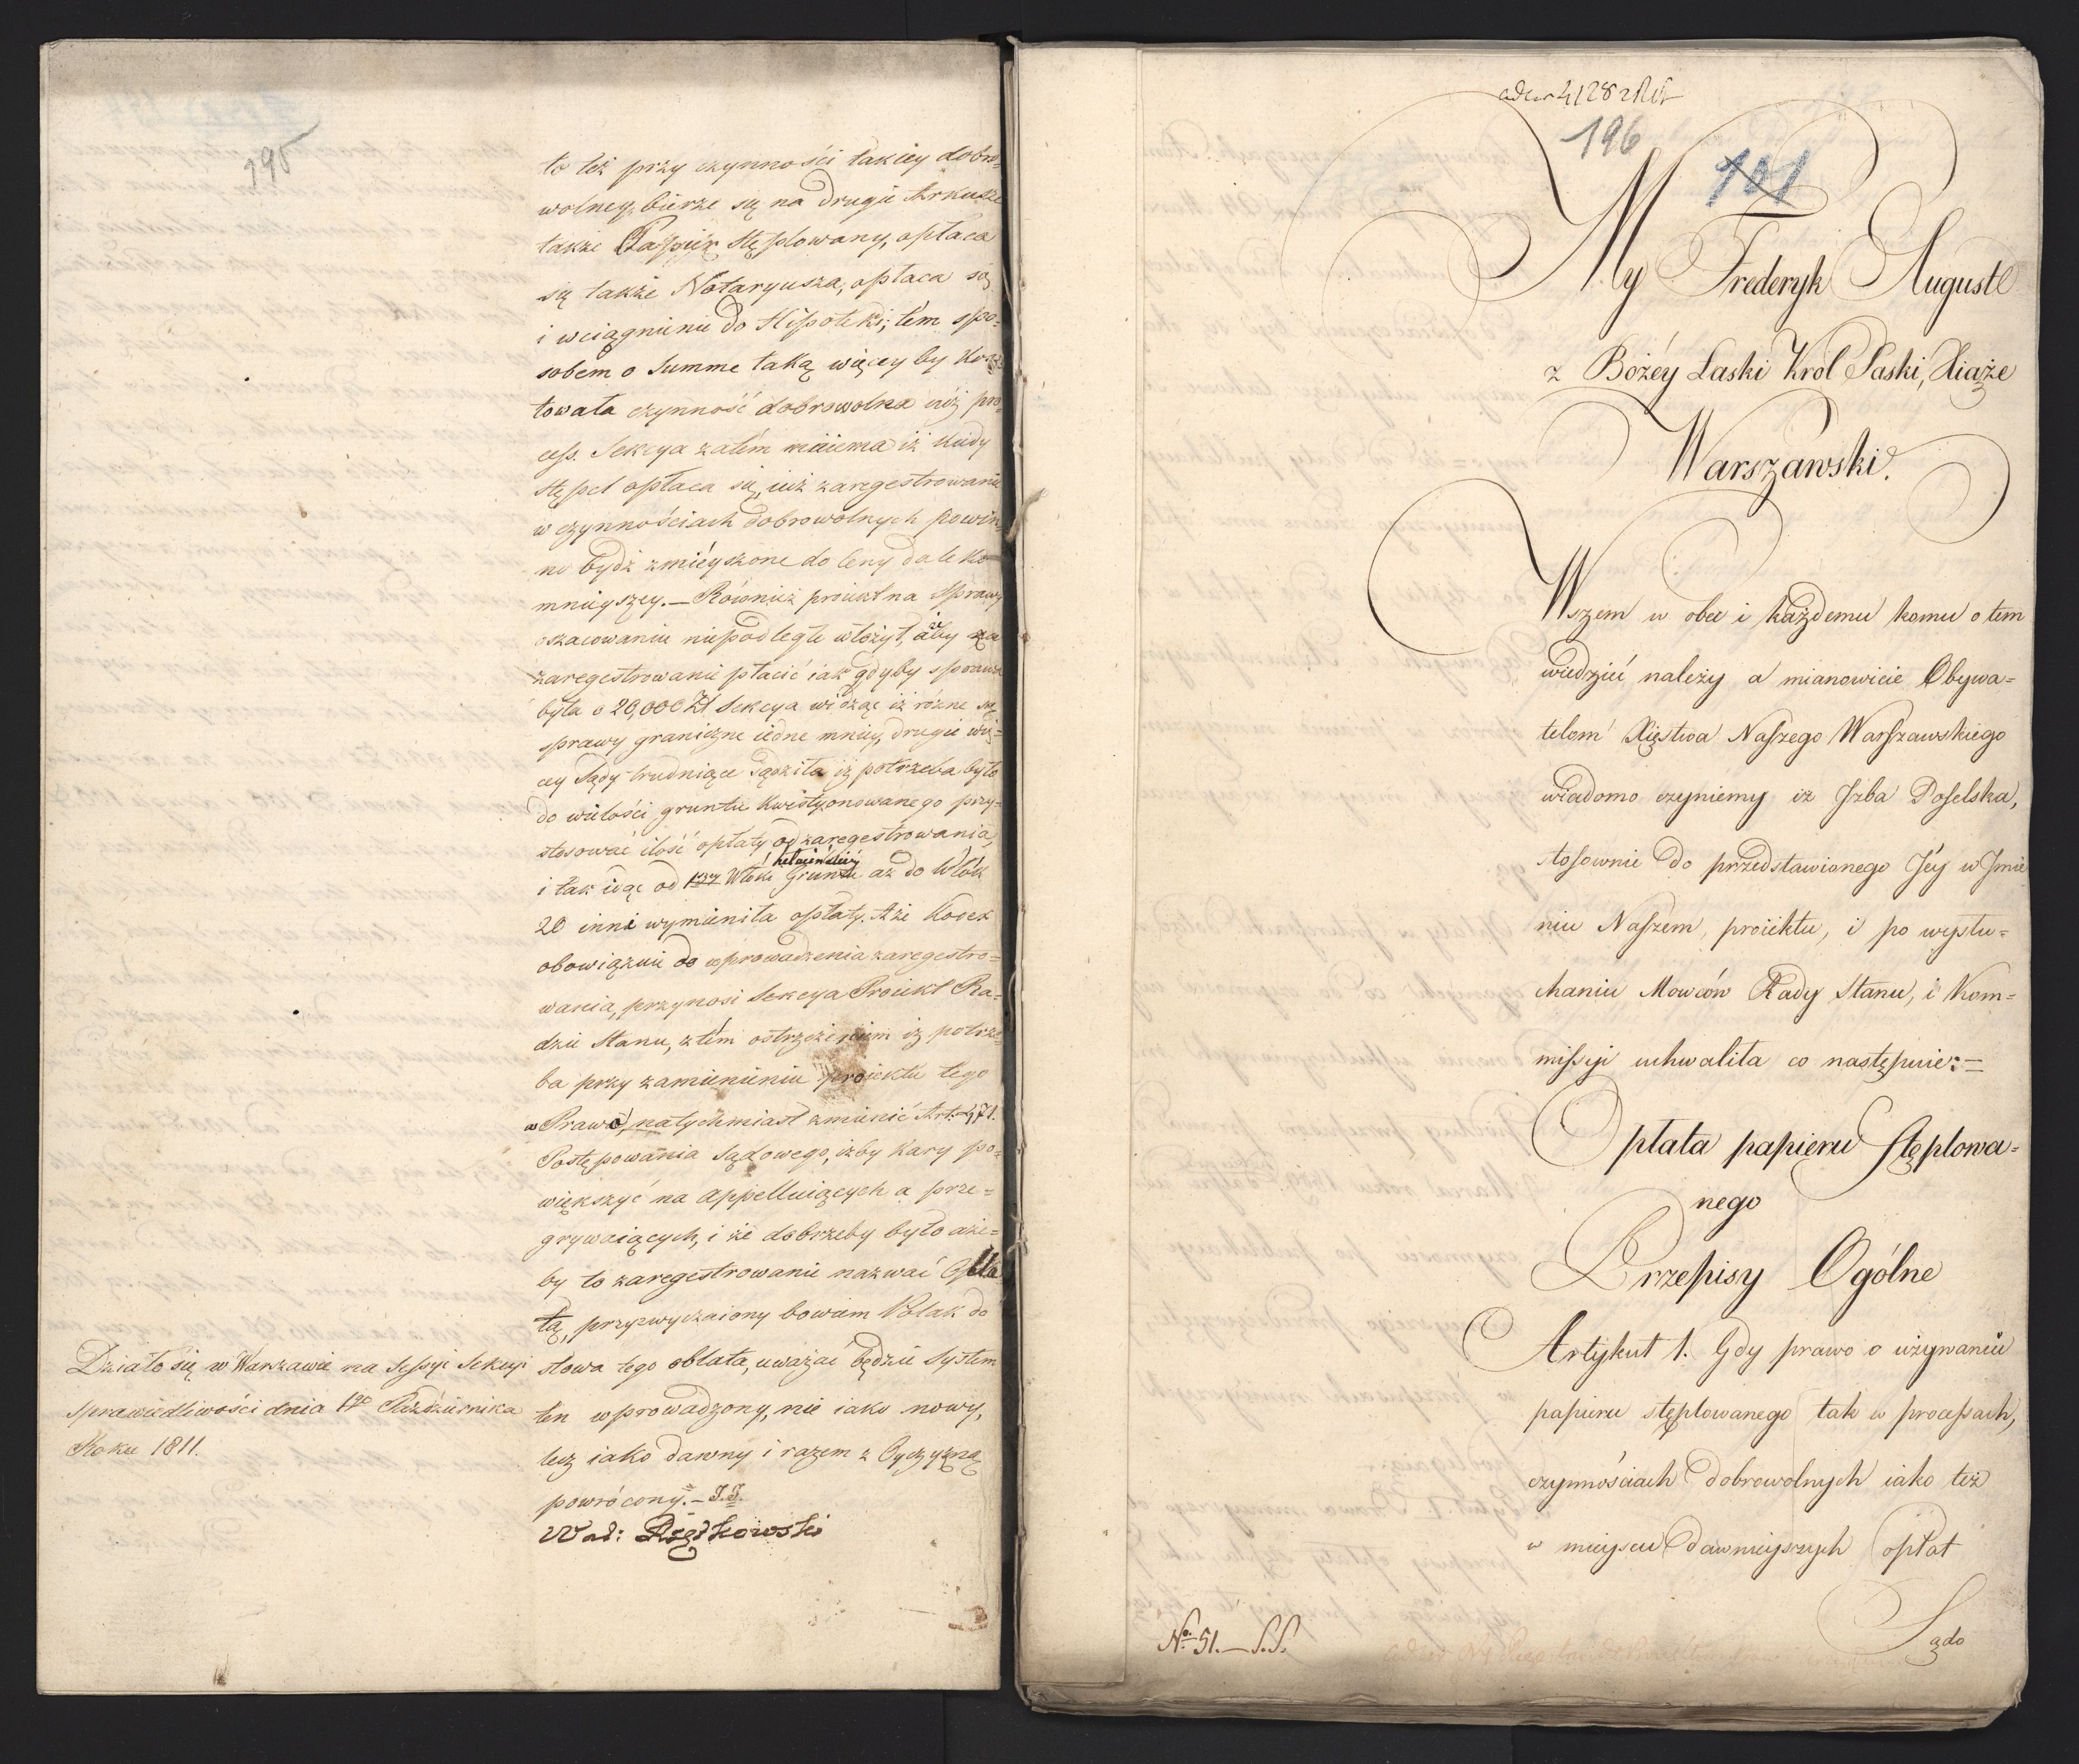 195
to też przy czynności takiey dobro=
wolney, bierze się na drugie Arkusze
także Papiér stęplowany, opłaca
się także Notaryusza, opłaca się
i wciągnienie do Hipoteki; tém spo=
sobem o Summe taką więcey by kosz
towała czynność dobrowolna niż pro=
cess. Sekcya zatém mniema iż kiedy
stępel opłaca się, iuż zaregestrowanie
w czynnościach dobrowolnych powin=
no bydź zmiéyszone do Ceny daleko
mnieyszey. — Rownież proiekt na Sprawy
oszacowaniu niepodległe włożył, aby za
zaregestrowanie płacić iak gdyby sprawa
była o 20,000 Zł Sekcya widząc iż różne są
sprawy graniczne iedne mniey, drugie wię=
cey Sądy trudniące Sądziła iż potrzeba było
do wielości gruntu kwestyonowanego przy=
stosować ilość opłaty od zaregestrowania,
chełmińskiéy
i tak idąc od Włoki Gruntu aż do Włók
20 inne wymieniła opłaty. Aże Kodex
obowiązuie do wprowadzenia zaregestro=
wania, przynosi Sekcya Proiekt Ra=
dzie Stanu, z tém ostrzeżeniem iż potrze=
ba przy zamienieniu proiektu tego
w Prawo, natychmiast zmienić Art. 471.
Postępowania Sądowego, iżby kary po=
większyć na appelluiących a prze=
grywaiących, i że dobrzeby było aże=
by to zaregestrowanie nazwać Obla
tą, przyzwyczaiony bowiem Polak do
słowa tego oblata, uważać będzie System
ten wprowadzony, nie iako nowy,
lecz iako dawny i razem z Oyczyzną
powrócony. —
Działo się w Warszawie na Sessyi Sekcyi
Sprawiedliwości dnia 1go Października
Roku 1811.
196
101
My Frederyk August
z Bożéy Laski Krol Saski, Xiąże
Warszawski.
Wszem w obec i każdemu komu o tem
wiedzieć należy a mianowicie Obywa=
telom Xięstwa Naszego Warszawskiego
wiadomo czyniemy iż Jzba Poselska,
stosownie do przedstawionego Jéy w Jmie
niu Naszem, proiektu, i po wysłu=
chaniu Mowców Rady Stanu, i Kom=
missyi uchwaliła co następuie:=
Opłata papieru Stęplowa=
nego
Przepisy Ogólne
Artykuł 1. Gdy prawo o używaniu
papieru stęplowanego tak w processach,
czynnościach dobrowolnych iako też
w mieyscu dawnieyszych opłat
Sądo
No. 51. — S.S.